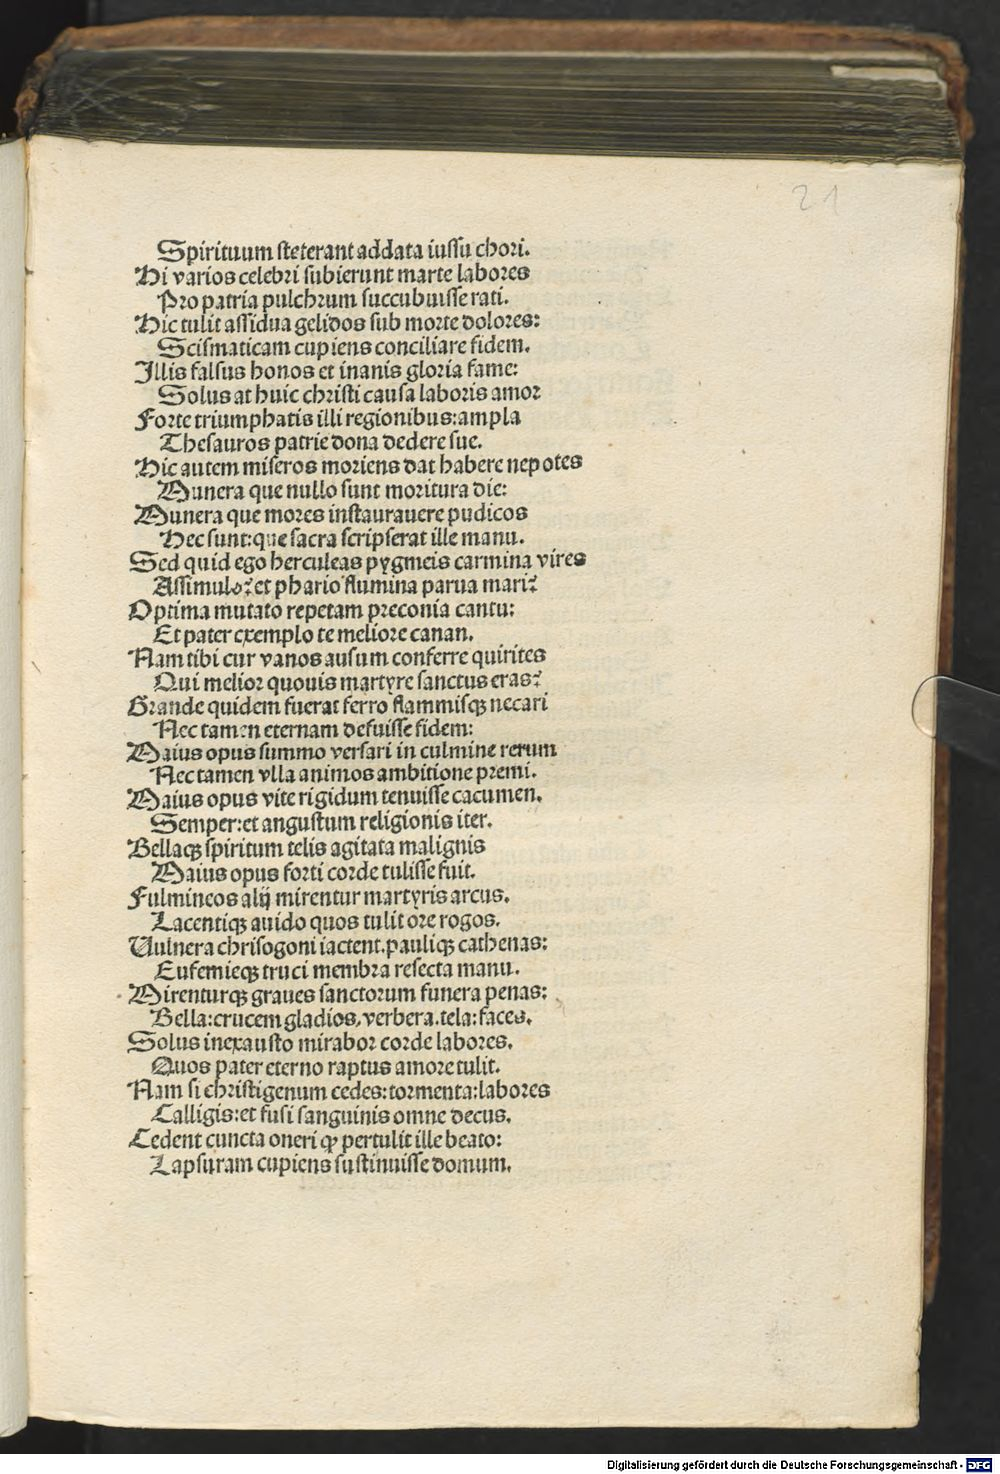 21
Spirituum steterant addata iussu chori.
Hi varios celebri subierunt marte labores
Pro patria pulchrum succubuisse rati.
Hic tulit assidua gelidos sub morte dolores:
Scismaticam cupiens conciliare fidem.
Illis falsus honos et inanis gloria fame:
Solus at huic christi causa laboris amor
Forte triumphatis illi regionibus: ampla
Thesauros patrie dona dedere sue.
Hic autem miseros moriens dat habere nepotes
Munera que nullo sunt moritura die:
Munera que mores instaurauere pudicos
Hec sunt: que sacra scripserat ille manu.
Sed quid ego herculeas pygmeis carmina vires
Assimulo? et phario flumina parua mari?
Optima mutato repetam preconia cantu:
Et pater exemplo te meliore canan.
Nam tibi cur vanos ausum conferre quirites
Qui melior quouis martyre sanctus eras?
Grande quidem fuerat ferro flammisqꝫ necari
Nec tamen eternam defuisse fidem:
Maius opus summo versari in culmine rerum
Nec tamen vlla animos ambitione premi.
Maius opus vite rigidum tenuisse cacumen.
Semper: et angustum religionis iter.
Bellaqꝫ spirituum telis agitata malignis
Maius opus forti corde tulisse fuit.
Fulmineos alij mirentur martyris arcus.
Lacentiqꝫ auido quos tulit ore rogos.
Vulnera chrisogoni iactent. pauliqꝫ cathenas:
Eufemieqꝫ truci membra resecta manu.
Mirenturqꝫ graues sanctorum funera penas:
Bella: crucem gladios. verbera. tela: faces.
Solus inexausto mirabor corde labores.
Quos pater eterno raptus amore tulit.
Nam si christigenum cedes: tormenta: labores
Calligis: et fusi sanguinis omne decus.
Cedent cuncta oneri qꝫ pertulit ille beato:
Lapsuram cupiens sustinuisse domum.
Digitalisierung gefördert durch die Deutsche Forschungsgemeinschaft - DFG